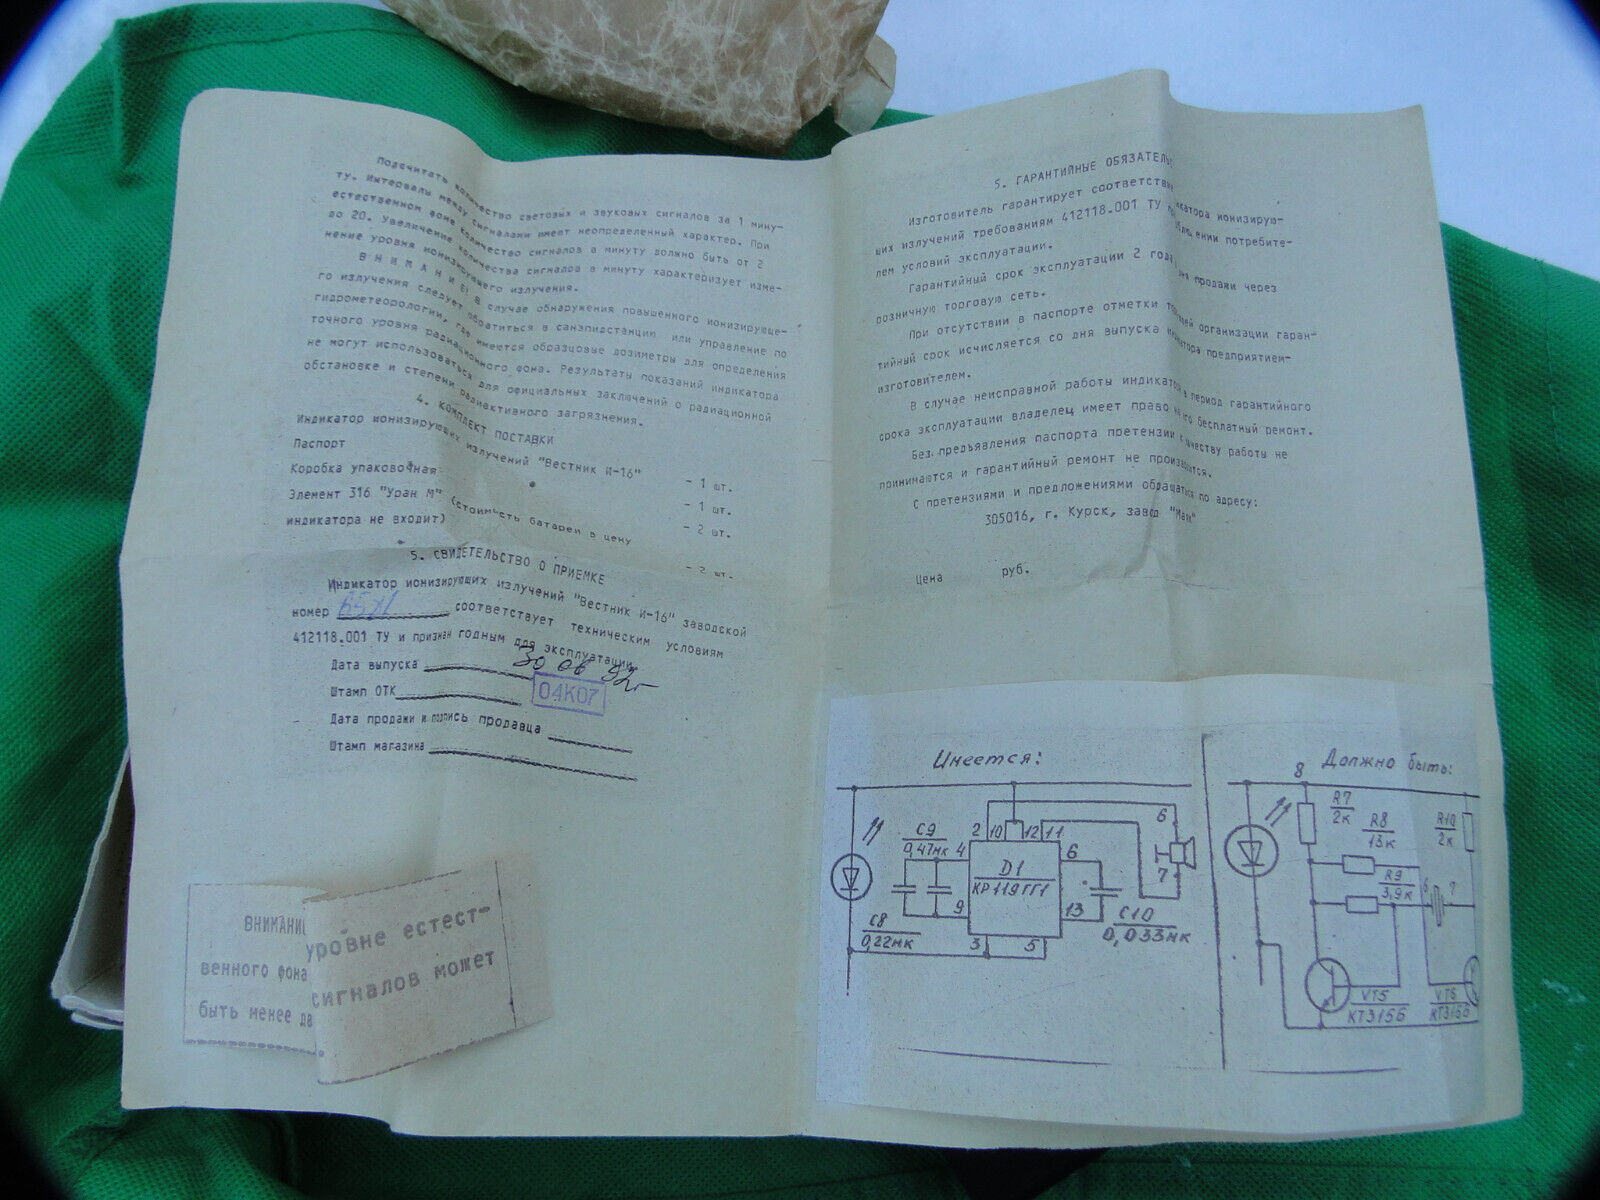 Подсчитать количество световых и звуковых сигналов за 1 мину-
ту. Интервалы между сигналами имеют неопределенный характер. При
естественном фоне количество сигналов в минуту должно быть от 2
до 20. Увеличение количества сигналов в минуту характеризует изме-
нение уровня ионизирующего излучения.
В Н И М А Н И Е! В случае обнаружения повышенного ионизирующе-
го излучения следует обратиться в санэпидстанцию или управление по
гидрометеорологии, где имеются образцовые дозиметры для определения
точного уровня радиационного фона. Результаты показаний индикатора
не могут использоваться для официальных заключений о радиационной
обстановке и степени радиактивного загрязнения.
4. КОМПЛЕКТ ПОСТАВКИ
Индикатор ионизирующих излучений "Вестник И-16" - 1 шт.
Паспорт - 1 шт.
Коробка упаковочная - 2 шт.
Элемент 316 "Уран М" (стоимсть батареи в цену
индикатора не входит) - 2 шт.
5. СВИДЕТЕЛЬСТВО О ПРИЕМКЕ
Индикатор ионизирующих излучений "Вестник И-16" заводской
номер соответствует техническим условиям
412118.001 ТУ и признан годным для эксплуатации.
Дата выпуска 30 06 92г
Штамп ОТК 04К07
Дата продажи и подпись продавца
Штамп магазина
ВНИМАНИ
венного фона
быть менее дв
уровне естест-
сигналов может
5. ГАРАНТИЙНЫЕ ОБЯЗАТЕЛЬС
Изготовитель гарантирует соответствие икатора ионизирую-
щих излучений требованиям 412118.001 ТУ при блюдении потребите-
лем условий эксплуатации.
Гарантийный срок эксплуатации 2 года дня продажи через
розничную торговую сеть.
При отсутствии в паспорте отметки торгующей организации гаран-
тийный срок исчисляется со дня выпуска индикатора предприятием-
изготовителем.
В случае неисправной работы индикатора в период гарантийного
срока эксплуатации владелец имеет право на его бесплатный ремонт.
Без предъявления паспорта претензии к качеству работы не
принимаются и гарантийный ремонт не производится.
С претензиями и предложениями обращаться по адресу:
305016, г. Курск, завод "Маяк"
Цена руб.
Имеется:
С9
0,47мк
С8
0,22мк
2 10 12 11
4 6
9 13
3 5
D1
КР119ГГ1
С10
0,033мк
6
7
Должно быть:
8
R7
2к
R8
13к
R9
3,9к
R10
2к
6 7
VT5
КТ315б
VT6
КТ315б